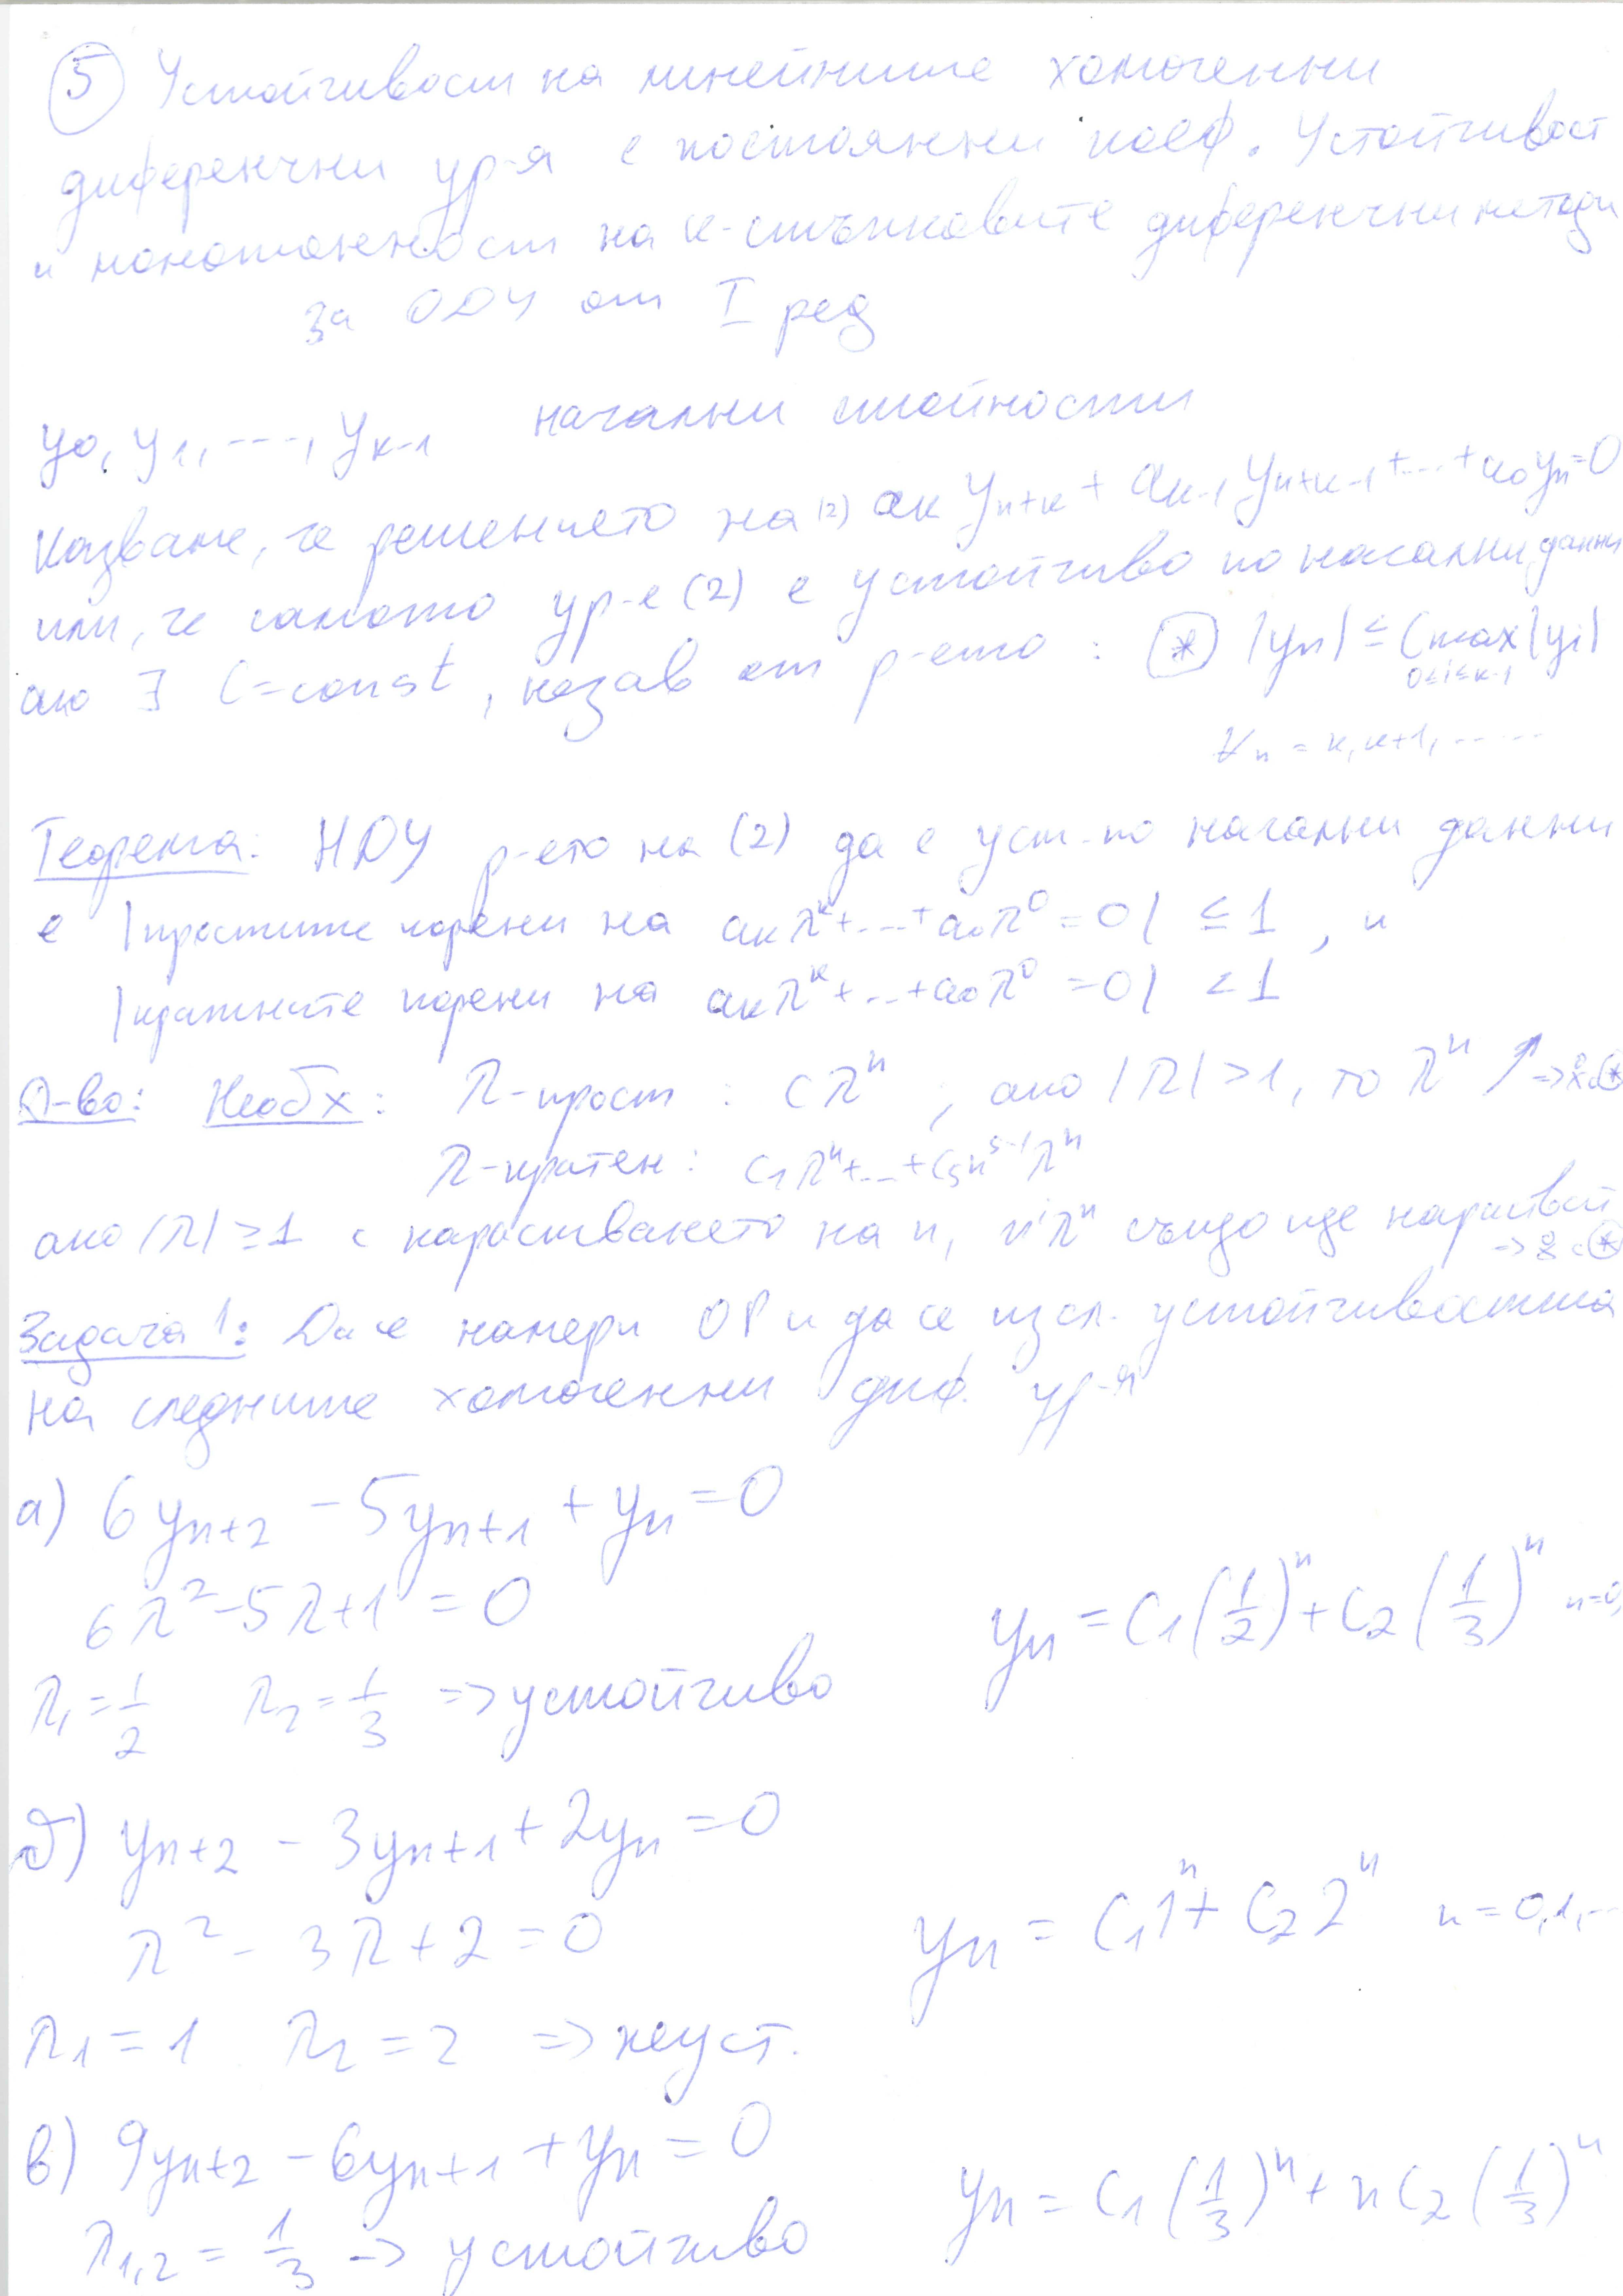 5 Устойчивост на линейните хомогенни
диференчни ур-я с постоянни коеф. Устойчивост
и монотонност на к-стъпковите диференчни методи
за ОДУ от I ред
y₀, y₁, ---, yₖ₋₁ начални стойности
Казваме, че решението на (2) aₖ yₙ₊ₖ + aₖ₋₁ yₙ₊ₖ₋₁ + ... + a₀yₙ = 0
или, че самото ур-е (2) е устойчиво по начални данни
ако ∃ C = const, незав от р-ето : (*) |yₙ| ≤ C max |yᵢ|
0≤i≤k-1
∀n = k, k+1, ......
Теорема: НДУ р-ето на (2) да е уст. по начални данни
е |простите корени на aₖλᵏ + ... + a₀λ⁰ = 0| ≤ 1, и
|кратните корени на aₖλᵏ + ... + a₀λ⁰ = 0| < 1
Д-во: Необх: λ-прост : Cλⁿ, ако |λ| > 1, то λⁿ ↗ =>
λ-кратен : C₁λⁿ + ... + Cₛnˢ⁻¹λⁿ
ако |λ| ≥ 1 с нарастването на n, nⁱλⁿ също ще нараства
Задача 1: Да се намери ОР и да се изсл. устойчивостта
на следните хомогенни диф. ур-я
а) 6yₙ₊₂ - 5yₙ₊₁ + yₙ = 0
6λ² - 5λ + 1 = 0 yₙ = C₁(1/2)ⁿ + C₂(1/3)ⁿ n=0,
λ₁ = 1/2 λ₂ = 1/3 => устойчиво
б) yₙ₊₂ - 3yₙ₊₁ + 2yₙ = 0
λ² - 3λ + 2 = 0 yₙ = C₁1ⁿ + C₂2ⁿ n = 0,1,...
λ₁ = 1 λ₂ = 2 => неуст.
в) 9yₙ₊₂ - 6yₙ₊₁ + yₙ = 0
λ₁,₂ = 1/3 -> устойчиво yₙ = C₁(1/3)ⁿ + nC₂(1/3)ⁿ